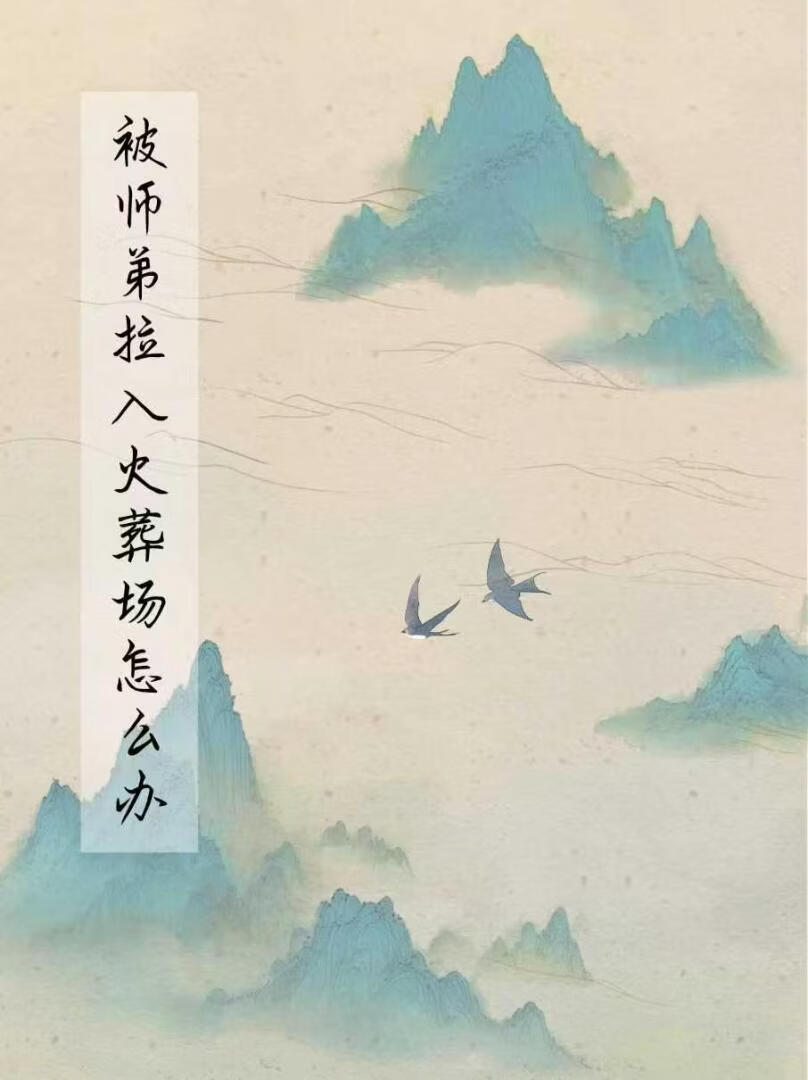 被师弟拉入火葬场怎么办